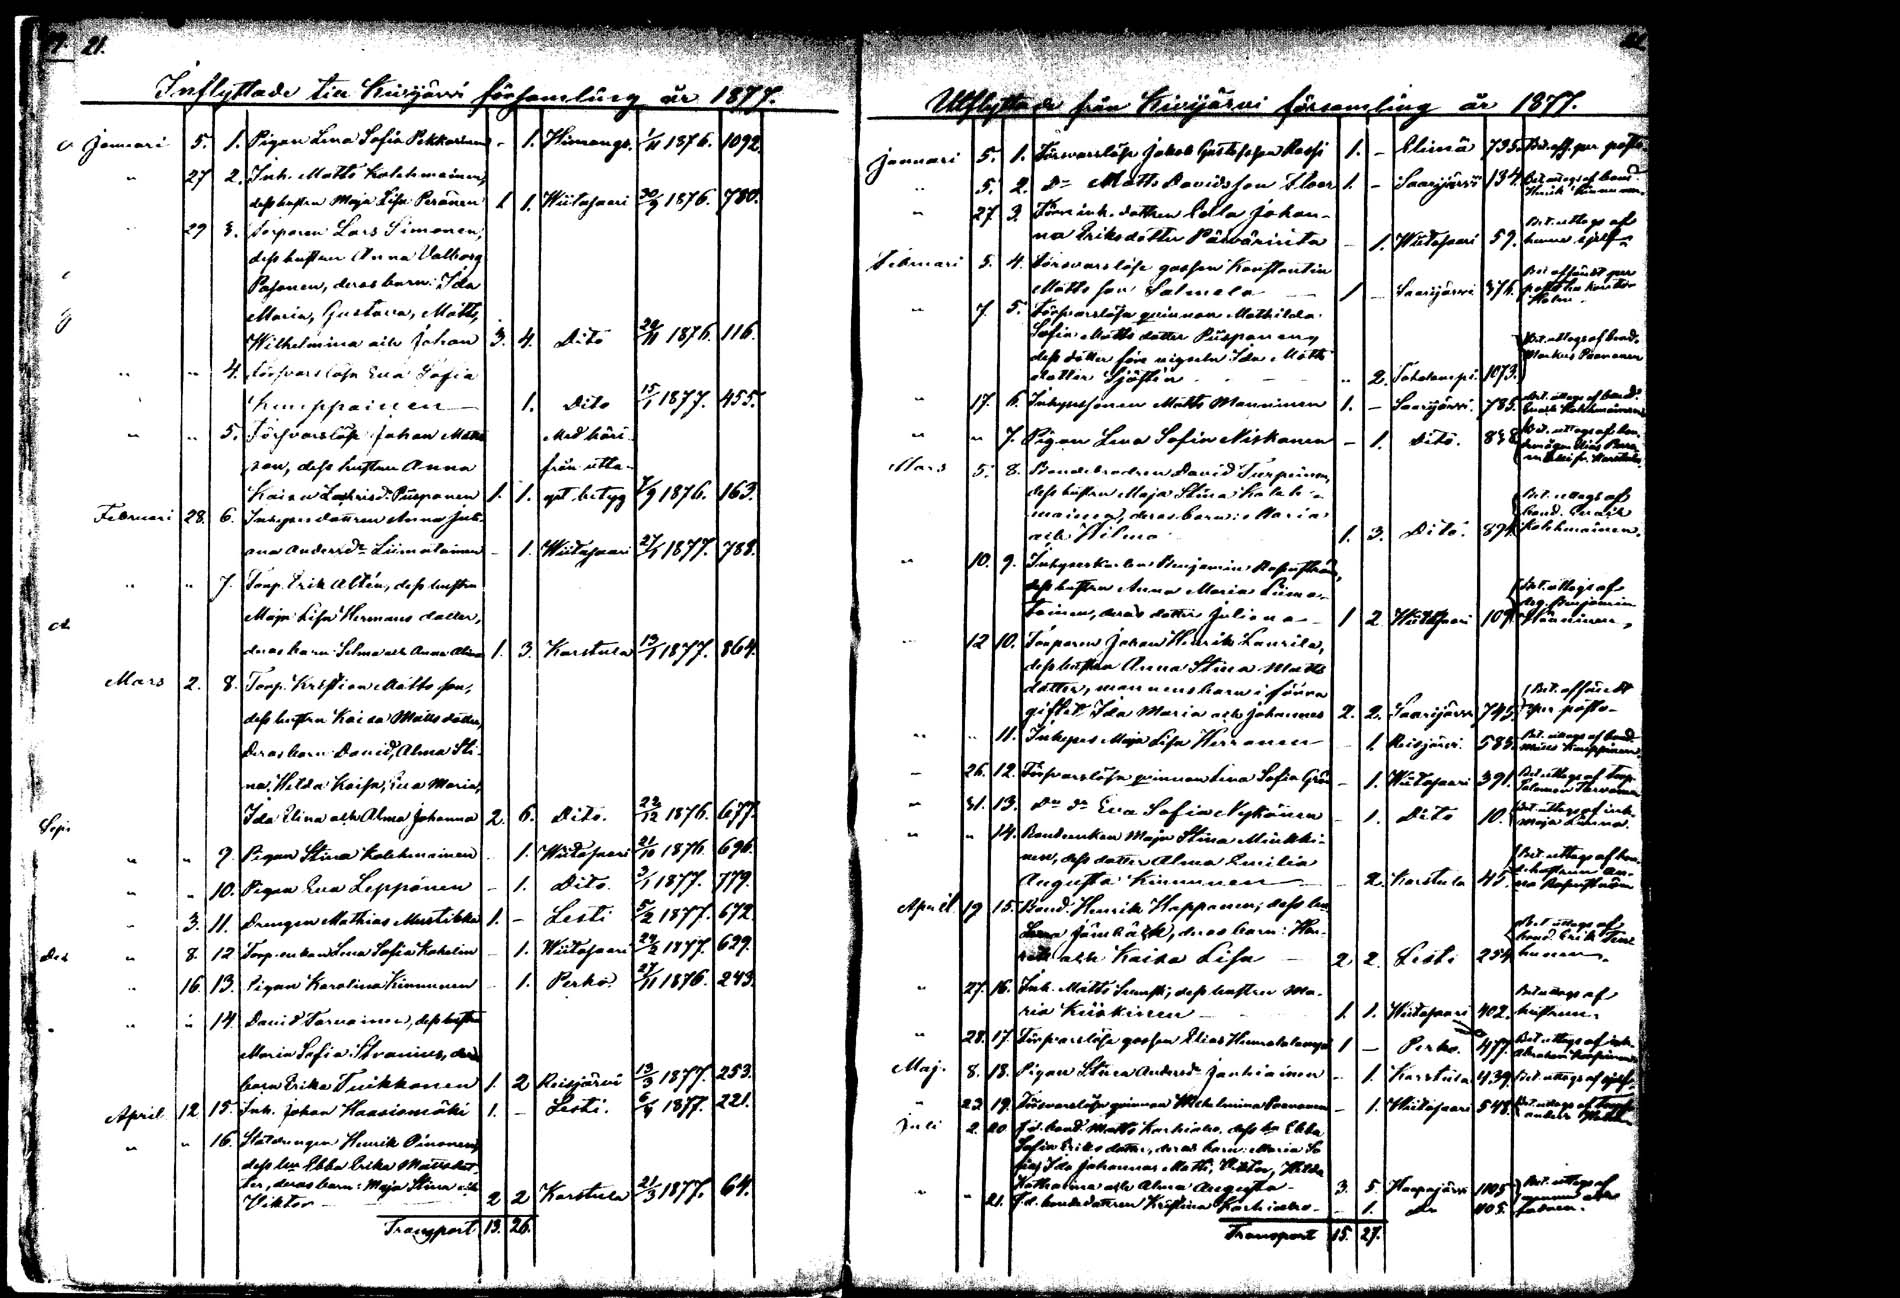 21.
Inflyttade till Kivijärvi församling år 1877.
Januari 5. 1. Pigan Lena Sofia Pekkarinen - 1. Himango. 1/11 1876. 1092.
" 27 2. Inh. Matts Kolehmainen,
dess hustru Maja Lisa Peränen 1 1. Wiitasaari 30/9 1876. 780.
29 3. Torparen Lars Simonen,
dess hustru Anna Valborg
Pasonen, deras barn: Ida
Maria, Gustava, Matts,
Wilhelmina och Johan 3. 4. Dito 22/11 1876. 116.
" " 4. Försvarslösa Eva Sofia
Kumppainen 1. Dito 15/1 1877. 455.
" " 5. Försvarslöse Johan Matts
son, dess hustru Anna Med häri-
från utta-
Kaisa Puspanen 1. 1. get betyg 7/9 1876. 163.
Februari 28. 6. Inhyses dottren Anna Juli-
ana Andersd:r Liimatainen - 1. Wiitasaari 27/1 1877. 788.
" " 7. Torp. Erik Altén, dess hustru
Maja Lisa Hermans dotter,
deras barn: Selma och Anna Alina 1. 3. Karstula 13/1 1877. 864.
Mars 2. 8. Torp. Kristian Matts son,
dess hustru Kaisa Matts dotter,
deras barn: David, Alma Sti-
na, Hilda Kaisa, Eva Maria,
Ida Elina och Alma Johanna 2. 6. Dito. 22/12 1876. 677.
" " 9. Pigan Stina Kolehmainen - 1. Wiitasaari 21/10 1876. 696.
" 10. Pigan Eva Leppänen - 1. Dito. 3/1 1877. 779.
3. 11. Drengen Mathias Mustikka 1. - Lesti 5/2 1877. 672.
" 8. 12 Torp. enkan Lena Sofia 1. Wiitasaari 24/2 1877. 629.
" 16. 13. Pigan Karolina Kinnunen - 1. Perho. 27/11 1876. 243.
" " 14. David Tarvainen, dess hustru
Maria Sofia Stranius, deras
barn Erika Tuikkanen 1. 2 Reisjärvi 13/3 1877. 253.
April 12 15. Inh. Johan Haasiomäki 1. - Lesti. 6/4 1877. 221.
" " 16. Henrik Oinonen,
dess hu Ebba Erika Mattsdot-
ter, deras barn: Maja Stina och
Viktor 2 2 Karstula 21/3 1877. 64.
Transport 13. 26.
Utflyttade från Kivijärvi församling år 1877.
Januari 5. 1. Försvarslöse Jakob Gustafsson Rossi 1. - Elimä 735. Bet. aff. per posto
" 5. 2. D:o Matts Davidsson 1. - Saarijärvi 134. Bet. uttogs af bond.
Henrik Kinnunen
" 27 3. Förre inh. dottren Eva Johan-
na Eriksdotter - 1. Wiitasaari 59. Bet. uttogs af
henne sjelf.
Februari 5. 4. Försvarslöse gossen Konstantin
Matts son Salmela 1 - Saarijärvi 376. Bet. affändt per
posto
" 7. 5. Försvarslösa qvinnan Mathilda
Sofia Matts dotter Puspanen,
dess dotter före vigseln Ida Matts
dotter Sjöstén " 2. Toholampi. 1073. Bet. uttogs af bond.
Markus Paananen
" 17. 6. Inhysessonen Matts Manninen 1. - Saarijärvi. 785. Bet. uttogs af bond.
" " 7. Pigan Lena Sofia Niskanen - 1. Dito. 838. Bet. uttogs af
Mars 5. 8. Bondebrodren David Turpeinen,
dess hustru Maja Stina Koleh-
mainen, deras barn: Maria
och Hilma 1. 3. Dito. 894. Bet. uttogs af
bond.
Kolehmainen.
" 10. 9. Inhyseskarlen Benjamin Rosenström,
dess hustru Anna Maria Liima-
tainen, deras dotter Juliana 1 2 Wiitasaari 109. Bet. uttogs af
Benjamin
Manninen,
12 10. Torparen Johan Henrik Laurila,
dess hustru Anna Stina Matts
dotter, mannens barn i förra
giftet: Ida Maria och Johannes 2. 2. Saarijärvi 745. Bet. affändt
per posto
" " 11. Inhyses Maja Lisa Herranen - 1. Reisjärvi. 585. Bet. uttogs af bond.
Matts Kumppainen
- 26. 12. Försvarslösa qvinnan Lena Sofia Grön - 1. Wiitasaari 391. Bet. uttogs af Torp.
Salomon Tarvainen
" 31. 13. D:o d:o Eva Sofia Nykänen - 1. Dito 10. Bet. uttogs af inh.
Maja
" " 14. Bondenkan Maja Stina Minkki-
nen, dess dotter Alma Emilia
Augusta Kinnunen - 2. Karstula 45. Bet. uttogs af
An-
na Rosenström
April 19 15. Bond. Henrik Happonen, dess hu
Lena Jämbäck, deras barn: Hen-
rik och Kaisa Lisa 2 2. Lesti 254. Bet. uttogs af
bond. Erik
" 27. 16. Inh. Matts dess hustru Ma-
ria Kiiskinen 1. 1. Wiitasaari 402. Bet. uttogs af
hustrun.
" 28. 17. Försvarslöse gossen Elias 1 - Perho. 477. Bet. uttogs af inh.
Abraham
Maj. 8. 18. Pigan Stina Andersd:r Jauhiainen - 1. Karstula 439. Bet. uttogs af sjelf.
" 23 19. Försvarslösa qvinnan Wilhelmina Paananen - 1. Wiitasaari 548. Bet. uttogs af Torp.
Anders
Juli 2. 20 F.d. bond. Matts Karhiaho, dess hu Ebba
Sofia Eriksdotter, deras barn: Maria So-
fia, Ida Johannes Matts, Viktor, Hilda
Katharina och Alma Augusta 3. 5. Haapajärvi 1105 Bet. uttogs af
" " 21. F.d. bondedottren Kristina Karhiaho - 1. D:o 1105. fadren.
Transport 15. 27.